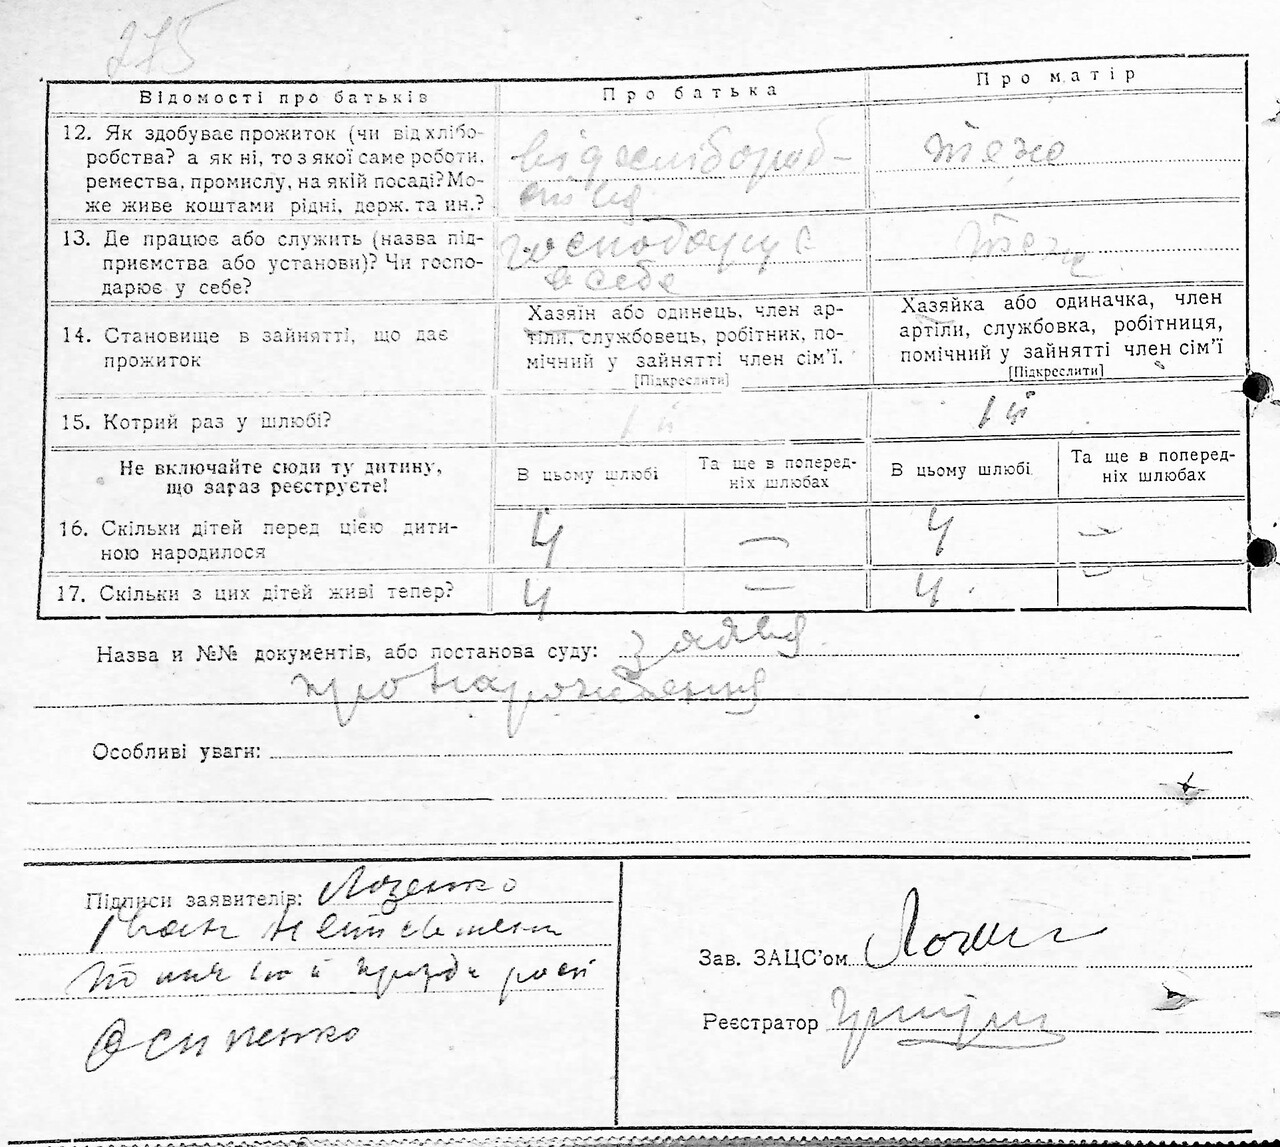 275
Відомості про батьків
Про батька
Про матір
12. Як здобуває прожиток (чи від хлібо-
робства? а як ні, то з якої саме роботи,
ремества, промислу, на якій посаді? Мо-
же живе коштами рідні, держ. та ин.?
від хлібороб-
ства
теж
13. Де працює або служить (назва під-
приємства або установи)? Чи госпо-
дарює у себе?
господарує
в себе
теж
14. Становище в зайнятті, що дає
прожиток
Хазяїн або одинець, член ар-
тіли, службовець, робітник, по-
мічний у зайнятті член сім'ї.
[Підкреслити]
Хазяйка або одиначка, член
артіли, службовка, робітниця,
помічний у зайнятті член сім'ї
[Підкреслити]
15. Котрий раз у шлюбі?
1й
1й
Не включайте сюди ту дитину,
що зараз реєструєте!
В цьому шлюбі
Та ще в поперед-
ніх шлюбах
В цьому шлюбі
Та ще в поперед-
ніх шлюбах
16. Скільки дітей перед цією дити-
ною народилося
4 — 4 —
17. Скільки з цих дітей живі тепер?
4 — 4
Назва и №№ документів, або постанова суду: заява
про народження
Особливі уваги:
Підписи заявителів: Лозенко
Іван
Осипенко
Зав. ЗАЦС'ом
Реєстратор